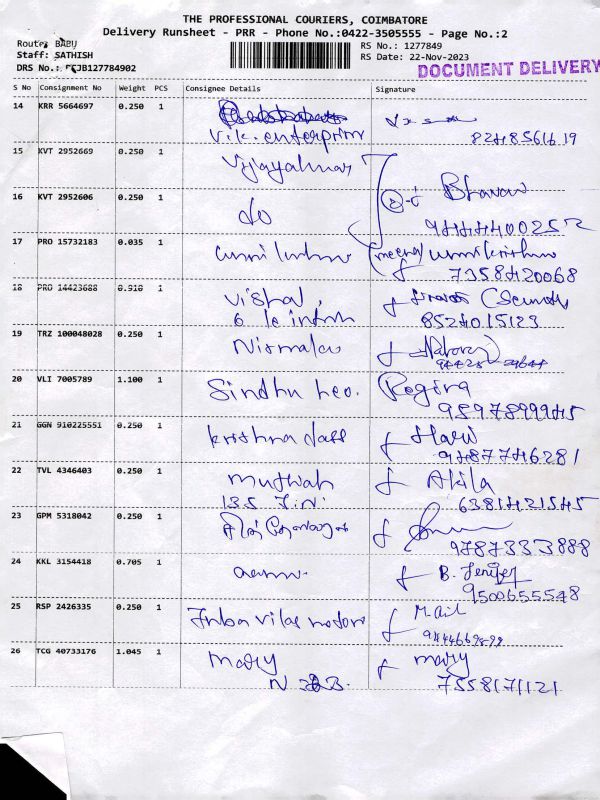 THE PROFESSIONAL COURIERS, COIMBATORE
Delivery Runsheet - PRR - Phone No.:0422-3505555 - Page No.:2
Route: BABU
Staff: SATHISH
DRS No.: JB127784902
RS No.: 1277849
RS Date: 22-Nov-2023
DOCUMENT DELIVERY
S No Consignment No Weight PCS Consignee Details Signature
14 KRR 5664697 0.250 1
V.K. enterprim
15 KVT 2952669 0.250 1
16 KVT 2952606 0.250 1 do Bhavan
17 PRO 15732183 0.035 1
7358420068
18 PRO 14423688 0.910 1 Vishal,
8524015123
19 TRZ 100048028 0.250 1 Nirmala
20 VLI 7005789 1.100 1 Sindhu Leo. Regina
9597899945
21 GGN 910225551 0.250 1 krishna dass Hari
9487746281
22 TVL 4346403 0.250 1 Akila
6381421545
23 GPM 5318042 0.250 1
9787333888
24 KKL 3154418 0.705 1 B. Jenifer
9500655548
25 RSP 2426335 0.250 1 Inba vilas motors
26 TCG 40733176 1.045 1 mary mary
7558171121